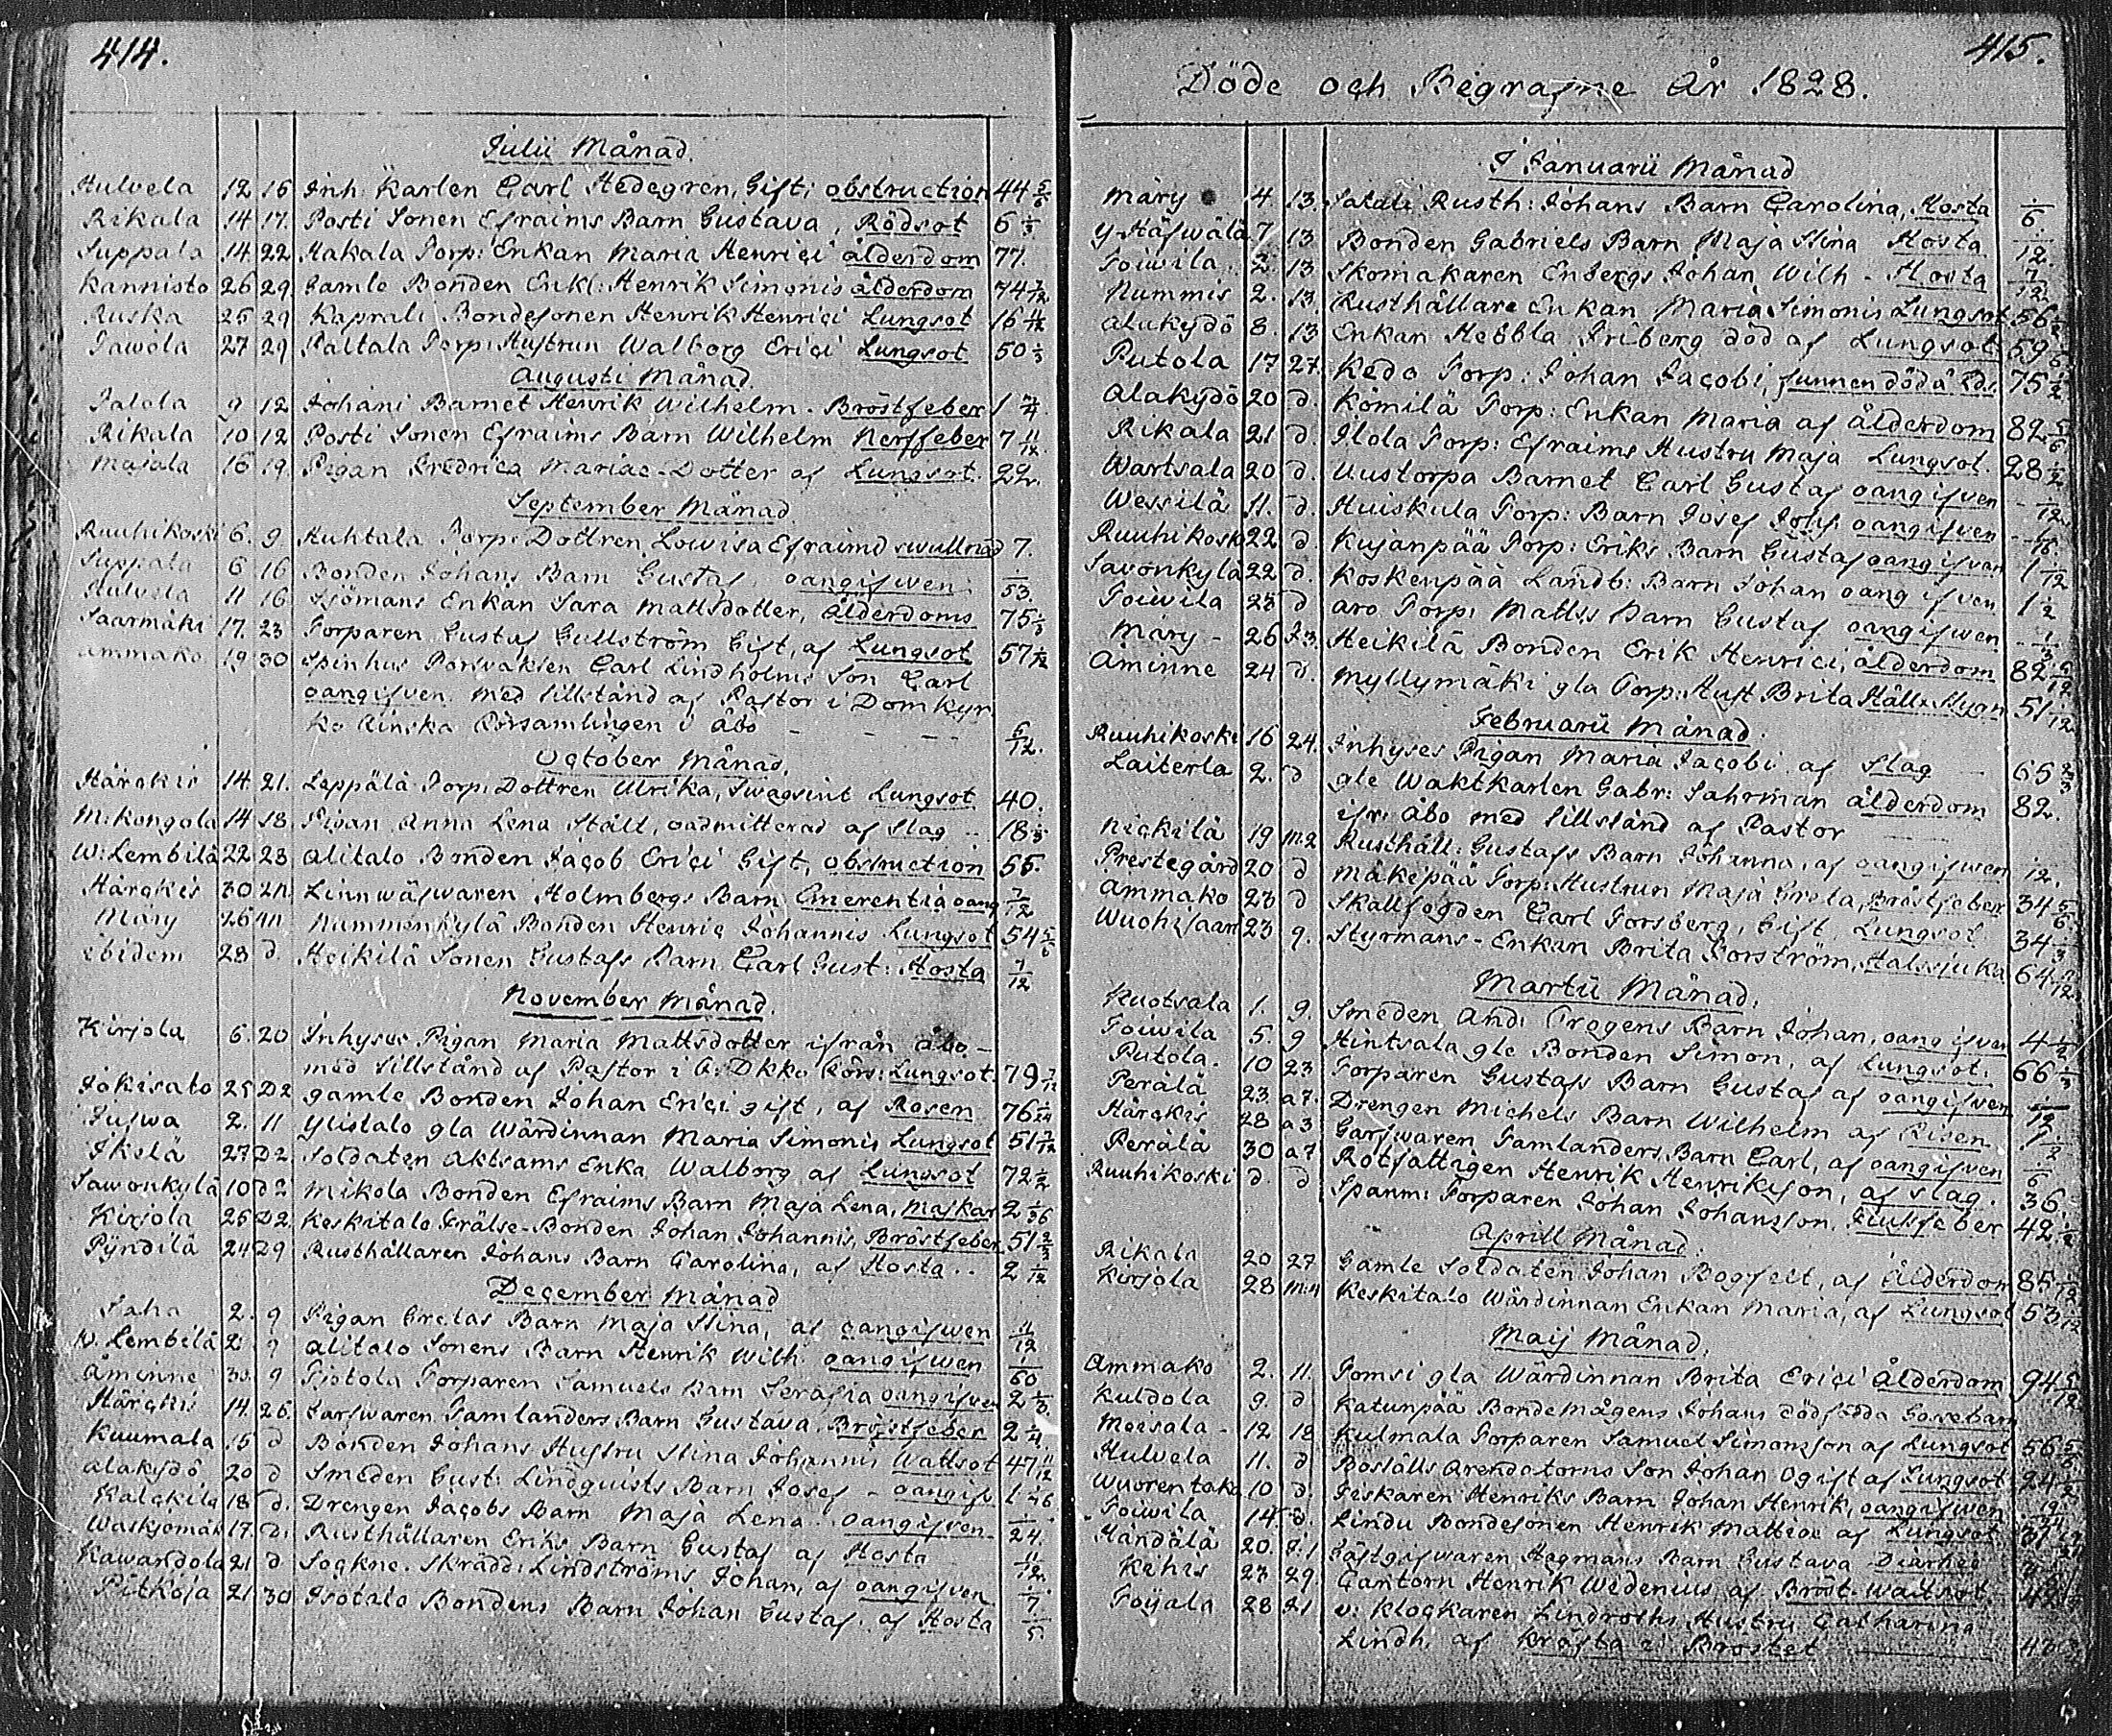 414.
Julii Månad.
Hulvela 12 16 Inh: Karlen Carl Hedegren, Gift; obstruction 44
Rikala 14 17. Posti Sonen Efraims Barn Gustava, Rödsot 6
Suppala 14 22 Hakala Torp: Enkan Maria Henrici ålderdom 77.
Kannisto 26 29 Gamle Bonden Henrik Simonis ålderdom 74 7/12
Ruska 25 29 Kaprali Bondesonen Henrik Henrici Lungsot 16 11/12
Tawola 27 29 Paltala Torp: Hustrun Walborg Erici Lungsot 50 1/3
Augusti Månad.
Jalola 9 12 Johani Barnet Henrik Wilhelm. Bröstfeber 1
Rikala 10 12 Posti Sonen Efraims Barn Wilhelm Nerffeber 7 11/12
Majala 16 19 Pigan Fredrica Mariae-Dotter af Lungsot. 22.
September Månad.
Ruuhikoski 6. 9 Huhtala Torp: Dottren Lowisa Efraimd swullnad 7.
Suppala 6 16 Bonden Johans Barn Gustaf, oangifwen 1/53
Hulvela 11 16 Sjömans Enkan Sara Mattsdotter, ålderdoms 75 1/3
Saarmäki 17. 23 Torparen Gustaf Gullström Gift, af Lungsot 57 1/12
Ammako 19 30 Spinhus Carl Lindholms Son Carl
oangifven. med tillstånd af Pastor i Domkyr
ko Finska Församlingen i Åbo - - - 6/12.
October Månad.
Härckis 14 21. Leppälä Torp: Dottren Ulrika, Lungsot 40.
M:kongola 14 18 Pigan Anna Lena Ståll, oadmitterad af Slag 18
W:Lembilä 22 23 Alitalo Bonden Jacob Erici Gift, obstruction 55.
Härckis 30 2n. Linnwäfwaren Holmbergs Barn Emerentia oang 7/12
Märy 26 4n Nummenkylä Bonden Henric Johannis Lungsot 54 5/6
ibidem 28 d. Heikilä Sonen Gustafs Barn Carl Gust: Hosta 7/12
November Månad.
Kirjola 6. 20 Inhyses Pigan Maria Mattsdotter ifrån Åbo -
med tillstånd af Pastor i Förs: Lungsot. 79 7/12
Jokisalo 25 D2 gamle Bonden Johan Erici gift, af Rosen 76
Juswa 2. 11 Ylistalo gla Wärdinnan Maria Simonis Lungsot 51
Ikelä 27 D2. Soldaten Aktsams Enka Walborg af Lungsot 72 1/2
Sawonkylä 10 d2 Mikola Bonden Efraims Barn Maja Lena, Maskar 2 1/36
Kirjola 26 D2. Keskitalo Frälse-Bonden Johan Johannis, Bröstfeber 51 2/3
Pyndilä 24 D9 Rusthållaren Johans Barn Carolina, af Hosta.. 2 1/12
December Månad
Saha 2. 9 Pigan Gretas Barn Maja Stina, af oangifwen 11/12
W. Lembilä 2. 9 Alitalo Sonens Barn Henrik Wilh. oangifwen 1/60
Åminne 30. 9 Torparen Samuels Barn Serafia oangifven 2 1/3
Härckis 14. 26. Garfwaren Tamlanders Barn Gustava. Bröstfeber 2 1/4
Kuumala 15 d Bonden Johans Hustru Stina Johannis Wattsot 47 11/12
Alakydö 20 d Smeden Gust: Lindquists Barn Josef - oangifv. 1
Kalckila 18 d. Drengen Jacobs Barn Maja Lena. oangifven 1/24.
Waskjomäk 17. d. Rusthållaren Eriks Barn Gustaf af Hosta 11/12.
Kawandola 21 d Sockne. Skrädd: Lindströms Johan, af oangifven 1/7
Pitkoja 21 30 Isotalo Bondens Barn Johan Gustaf. af Hosta 1/5.
415.
Döde och Begrafne År 1828.
I Januarii Månad
Märy 4 13. Rusth: Johans Barn Carolina, Hosta 1/6
Y-Häfwälä 7 13 Bonden Gabriels Barn Maja Stina Hosta 1/12.
Toiwila 2 13 Skomakaren Enbergs Johan Wilh - Hosta 7/12
Nummis 2. 13. Rusthållare Enkan Maria Simonis Lungsot 56
Alakydö 8. 13 Enkan Hebbla Friberg död af Lungsot 59
Putola 17 27. Kedo Torp: Johan Jacobi, funnen död å 75 1/2
Alakydö 20 d. Kömilä Torp: Enkan Maria af ålderdom 82 5/6
Rikala 21 d. Ilola Torp: Efraims Hustru Maja Lungsot. 28 1/2
Wartsala 20 d. Uustorpa Barnet Carl Gustaf oangifven 1/12
Wessilä 11. d. Huiskula Torp: Barn Josef oangifven
Ruuhikosk 22 d. Kujanpää Torp: Eriks Barn Gustaf oangifvan 1 1/12
Savonkylä 22 d. Koskenpää Landb: Barn Johan oangifven 1 1/2
Toiwila 23 d Aro Torp: Matts Barn Gustaf oangifwen 1/3
Märy - 26 F3. Heikilä Bonden Erik Henrici, ålderdom 82
Åminne 24 d. Myllymäki gla Torp: Hust Brita Håll. Hygn 51 1/12
Februarii Månad.
Ruuhikoski 16 24. Inhyses Pigan Maria Jacobi af Slag 65 2/3
Laiterla 2. d gle Waktkarlen Gabr: Sahrman ålderdom 82.
ifr. Åbo med tillstånd af Pastor
Nickilä 19 m:2 Rusthåll: Gustafs Barn Johanna, af oangifwen 1/12.
Prestegård 20 d Mäkepää Torp: Hustrun Maja Greta, Bröstfeber 34 5/6
Ammako 23 d Skallfogden Carl Forsberg, Gift, Lungsot 34 1/3
Wuohisaari 23 9. Styrmans-Enkan Brita Forström, Halssjuka 64
Martii Månad.
Kuotsala 1. 9. Smeden And: Barn Johan, oangifven 4 1/2
Toiwila 5. 9 Hintsala gle Bonden Simon, af Lungsot. 66 1/3
Putola. 10 23 Torparen Gustafs Barn Gustaf af oangifven 1/12
Perälä 23 a7. Drengen Michels Barn Wilhelm af Risen 1/2
Härckis 28 a3 Garfwaren Tamlanders, Barn Carl, af oangifven 1/6
Perälä 30 a7 Rotfattigen Henrik Henriksson, af slag. 36.
Ruuhikoski d. d Spanm: Torparen Johan Johansson. feber 42 1/2
Aprill Månad.
Rikala 20 27 Gamle Soldaten Johan Bogfelt, af Ålderdom 85
Kirjola 28 m:4 Keskitalo Wärdinnan Enkan Maria, af Lungsot 53
Maij Månad.
Ammako 2. 11. Tomsi gla Wärdinnan Brita Erici Ålderdom 94 5/12
Kuldola 9. d Katunpää Bonde Mågens Johans dödfödda Gossebarn
Moisala - 12 18 Kulmala Torparen Samuel Simonsson af Lungsot 56 5/6
Hulvela 11. d Boställs Arendatorns Son Johan Ogift af Lungsot 24 1/2
Wuorentaka 10 d. Fiskaren Henriks Barn Johan Henrik, oangifwen
Toiwila 14. d. Lindu Bondesonen Henrik Mattiae af Lungsot
Händälä 20. J:1 Gästgifwaren Hagmans Barn Gustava Diarhee
Kihis 23 29. Cantorn Henrik Widenius af Bröst-Wattsot 48
Toijala 28 J1 v: Klockaren Lindroths Hustru Catharina
Lindh. af Kräfta i Bröstet